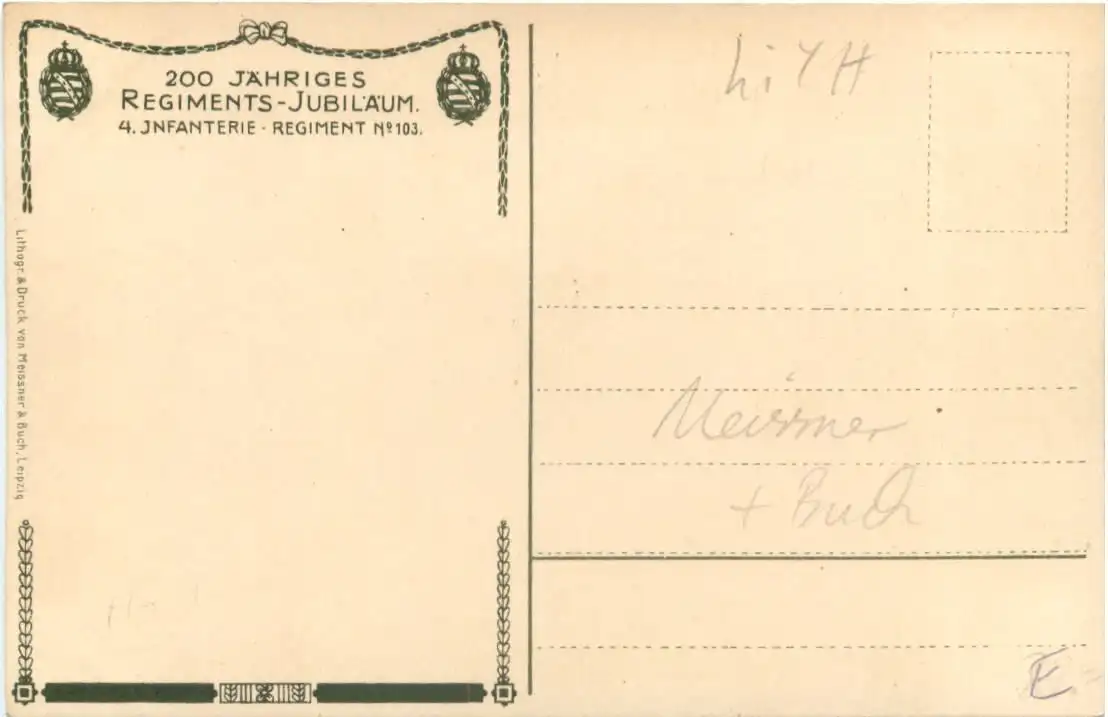 200 JÄHRIGES
REGIMENTS-JUBILÄUM.
4. JNFANTERIE - REGIMENT № 103.
Lithogr. & Druck von Meissner & Buch, Leipzig
Meissner
+ Buch
E